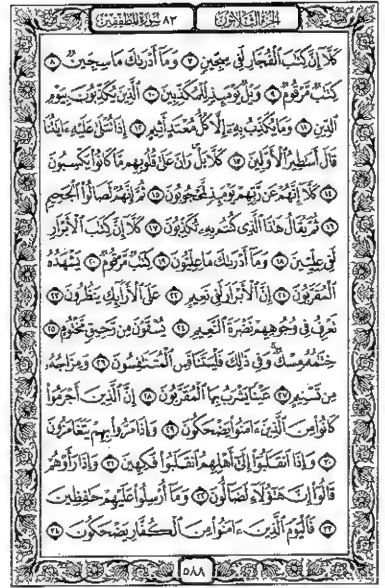 الجزء الثلاثون
٨٣ سورة المطففين
كَلَّآ إِنَّ كِتَٰبَ ٱلْفُجَّارِ لَفِى سِجِّينٍ ٧ وَمَآ أَدْرَىٰكَ مَا سِجِّينٌ ٨
كِتَٰبٌ مَّرْقُومٌ ٩ وَيْلٌ يَوْمَئِذٍ لِّلْمُكَذِّبِينَ ١٠ ٱلَّذِينَ يُكَذِّبُونَ بِيَوْمِ
ٱلدِّينِ ١١ وَمَا يُكَذِّبُ بِهِۦٓ إِلَّا كُلُّ مُعْتَدٍ أَثِيمٍ ١٢ إِذَا تُتْلَىٰ عَلَيْهِ ءَايَٰتُنَا
قَالَ أَسَٰطِيرُ ٱلْأَوَّلِينَ ١٣ كَلَّا بَلْ رَانَ عَلَىٰ قُلُوبِهِم مَّا كَانُوا۟ يَكْسِبُونَ
١٤ كَلَّآ إِنَّهُمْ عَن رَّبِّهِمْ يَوْمَئِذٍ لَّمَحْجُوبُونَ ١٥ ثُمَّ إِنَّهُمْ لَصَالُوا۟ ٱلْجَحِيمِ
١٦ ثُمَّ يُقَالُ هَٰذَا ٱلَّذِى كُنتُم بِهِۦ تُكَذِّبُونَ ١٧ كَلَّآ إِنَّ كِتَٰبَ ٱلْأَبْرَارِ
لَفِى عِلِّيِّينَ ١٨ وَمَآ أَدْرَىٰكَ مَا عِلِّيُّونَ ١٩ كِتَٰبٌ مَّرْقُومٌ ٢٠ يَشْهَدُهُ
ٱلْمُقَرَّبُونَ ٢١ إِنَّ ٱلْأَبْرَارَ لَفِى نَعِيمٍ ٢٢ عَلَى ٱلْأَرَآئِكِ يَنظُرُونَ ٢٣
تَعْرِفُ فِى وُجُوهِهِمْ نَضْرَةَ ٱلنَّعِيمِ ٢٤ يُسْقَوْنَ مِن رَّحِيقٍ مَّخْتُومٍ ٢٥
خِتَٰمُهُۥ مِسْكٌ وَفِى ذَٰلِكَ فَلْيَتَنَافَسِ ٱلْمُتَنَٰفِسُونَ ٢٦ وَمِزَاجُهُۥ
مِن تَسْنِيمٍ ٢٧ عَيْنًا يَشْرَبُ بِهَا ٱلْمُقَرَّبُونَ ٢٨ إِنَّ ٱلَّذِينَ أَجْرَمُوا۟
كَانُوا۟ مِنَ ٱلَّذِينَ ءَامَنُوا۟ يَضْحَكُونَ ٢٩ وَإِذَا مَرُّوا۟ بِهِمْ يَتَغَامَزُونَ
٣٠ وَإِذَا ٱنقَلَبُوٓا۟ إِلَىٰٓ أَهْلِهِمُ ٱنقَلَبُوا۟ فَكِهِينَ ٣١ وَإِذَا رَأَوْهُمْ
قَالُوٓا۟ إِنَّ هَٰٓؤُلَآءِ لَضَآلُّونَ ٣٢ وَمَآ أُرْسِلُوا۟ عَلَيْهِمْ حَٰفِظِينَ
٣٣ فَٱلْيَوْمَ ٱلَّذِينَ ءَامَنُوا۟ مِنَ ٱلْكُفَّارِ يَضْحَكُونَ ٣٤
٥٨٨